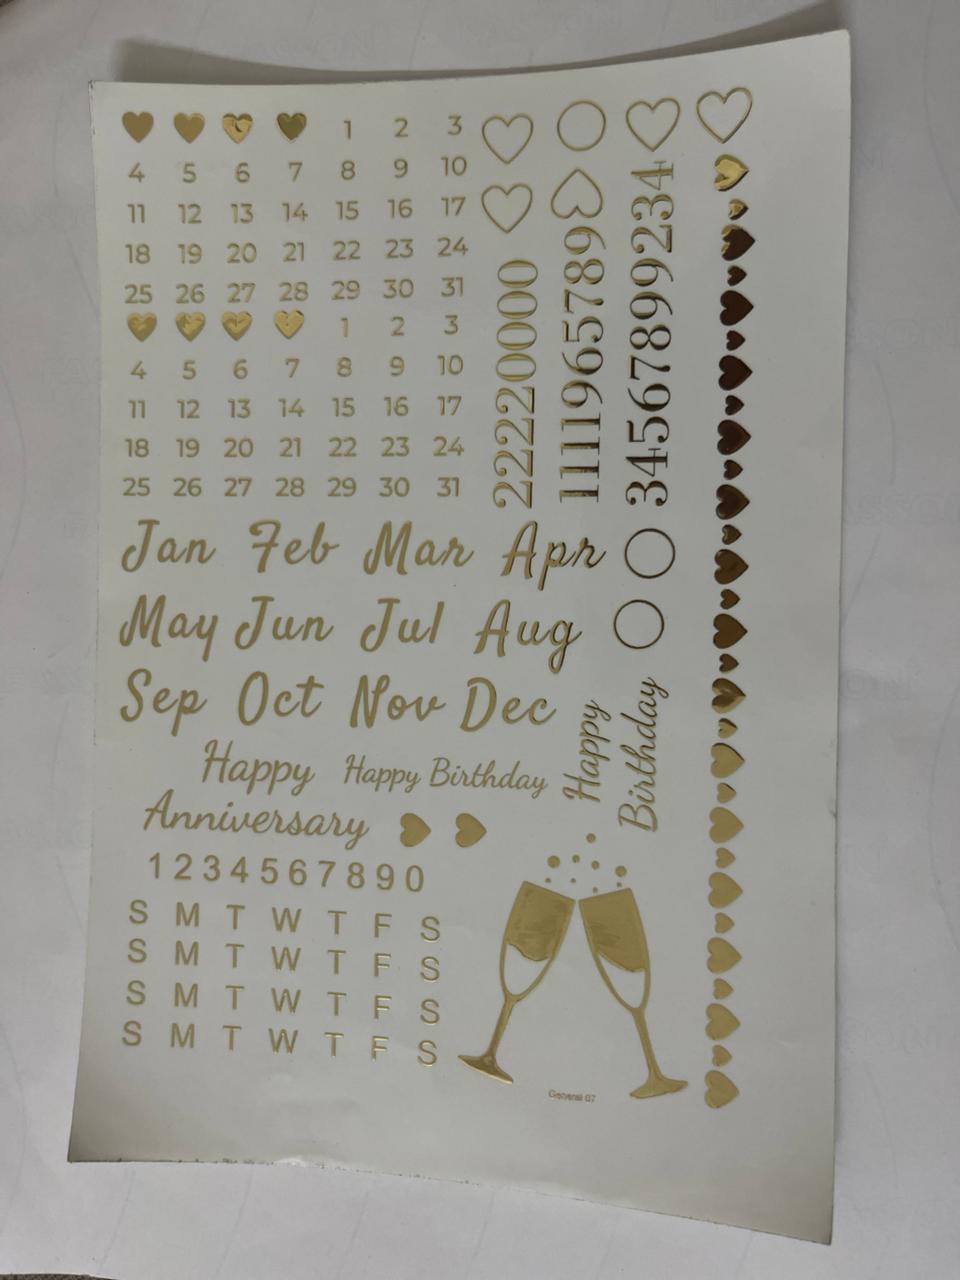 1 2 3
4 5 6 7 8 9 10
11 12 13 14 15 16 17
18 19 20 21 22 23 24
25 26 27 28 29 30 31
1 2 3
4 5 6 7 8 9 10
11 12 13 14 15 16 17
18 19 20 21 22 23 24
25 26 27 28 29 30 31
22220000
1111965789
34567899234
Jan Feb Mar Apr
May Jun Jul Aug
Sep Oct Nov Dec
Happy
Anniversary
Happy Birthday
Happy
Birthday
1234567890
S M T W T F S
S M T W T F S
S M T W T F S
S M T W T F S
General 07